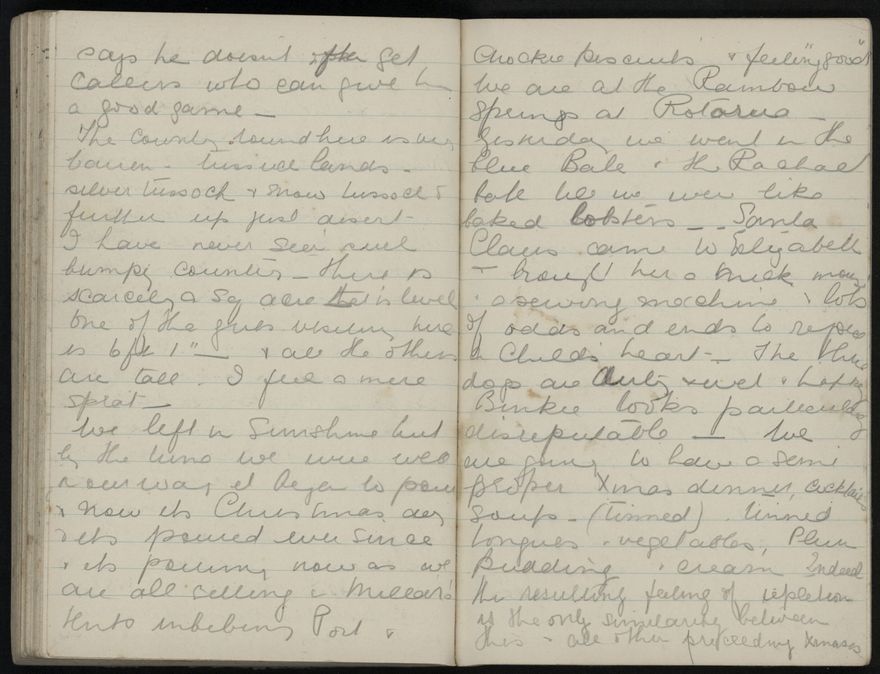 says he doesn't often get
callers who can give him
a good game —
The country round here is very
barren. Tussock lands.
silver tussock & snow tussock &
further up just desert —
I have never seen such
bumpy country — there is
scarcely a sq acre that is level
One of the guests here
is 6ft 1" — & all the others
are tall. I feel a mere
sprat —
We left in sunshine but
by the time we were well
on our way it began to pour
& now its Christmas day
& its poured ever since
& its pouring now as we
are all sitting in Millears
tents imbibing Port &
Chockie biscuits & feeling "good"
We are at the Rainbow
Springs at Rotorua —
Yesterday we went in the
Blue Bath & the Rachael
bath till we were like
baked lobsters — Santa
Claus came to Elizabeth
& brought her a trick
& a sewing machine & lots
of odds and ends to rejoice
a child's heart — The three
dogs are dirty & wet &
Binkie looks particularly
disreputable — We
are going to have a semi
proper Xmas dinner, cocktails
soup — (tinned) tinned
tongues & vegetables, Plum
Pudding & cream Indeed
the resulting feeling of repletion
is the only similarity between
this & all other preceeding Xmases.